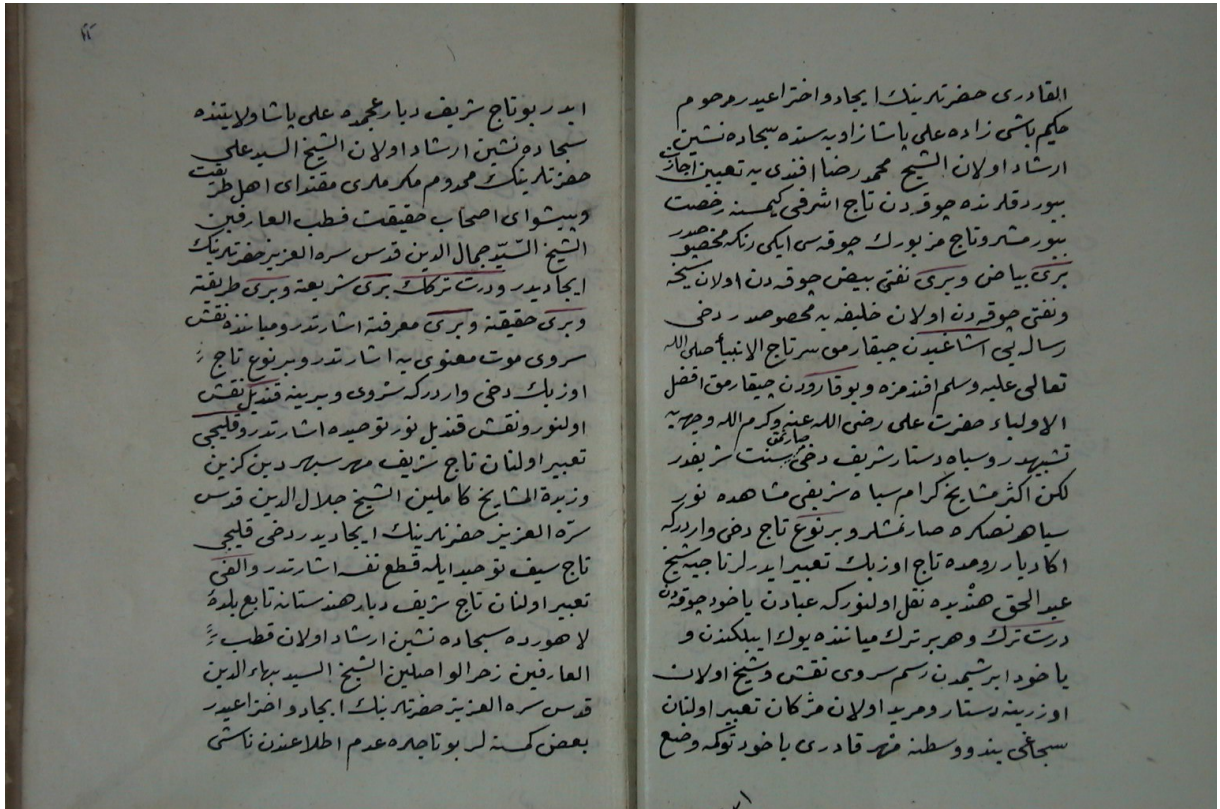 القادرى حضرتلرينك ايجاد و اختراعيدر مرحوم
حكيم باشى زاده على پاشا زاويه سنده سجاده نشين
ارشاد اولان الشيخ محمد رضا افندى يه تعيين اجازت
بيوردقلرنده چوقه دن تاج اشرفى كيمسنه رخصت
بيورمشلر و تاج مزبورك چوقه سى ايكى رنكه مخصوصدر
برى بياض و برى نفتى بيض چوقه دن اولان شيخه
و نفتى چوقه دن اولان خليفه يه مخصوصدر دخى
رساله يى اشاغيدن چيقارمق سر تاج الانبيأ صلى الله
تعالى عليه وسلم افندمزه و يوقارودن چيقارمق افضل
الاولياء حضرت على رضى الله عنه وكرم الله وجهه يه
تشبيهدر و سياه دستار شريف دخى صارمق سنت شريفدر
لكن اكثر مشايخ كرام سياه شريفى مشاهده نور
سياهدنصكره صارنمشلر و بر نوع تاج دخى واردركه
اكا ديار رومده تاج اوزبك تعبير ايدرلر تاجيه شيخ
عبد الحق هنديده نقل اولنوركه عبادن ياخود چوقه دن
درت ترك و هر بر ترك مياننده يوك ايپلكندن و
ياخود ابريشمدن رسم سروى نقش و شيخ اولان
اوزرينه دستار و مريد اولان مژكان تعبير اولنان
سجاغى بند و وسطنه مهر قادرى ياخود توكمه وضع
ايدر بو تاج شريف ديار عجمده على پاشا ولايتنده
سجاده نشين ارشاد اولان الشيخ السيد على
حضرتلرينك مخدوم مكرملرى مقتداى اهل طريقت
و پيشواى اصحاب حقيقت قطب العارفين
الشيخ السّيد جمال الدين قدس سره العزيز حضرتلرينك
ايجاديدر و درت تركك برى شريعته و برى طريقته
و برى حقيقته و برى معرفته اشارتدر و مياننده نقش
سروى موت معنوى يه اشارتدر و بر نوع تاج
اوزبك دخى واردركه سروى و يرينه قنديل نقش
اولنور و نقش قنديل نور توحيده اشارتدر و قليجى
تعبير اولنان تاج شريف مهر سپهر دين كزين
و زبدة المشايخ كاملين الشيخ جلال الدين قدس
سرّه العزيز حضرتلرينك ايجاديدر دخى قليجى
تاج سيف توحيد ايله قطع نفسه اشارتدر و الفى
تعبير اولنان تاج شريف ديار هندستانه تابع بلدۀ
لاهورده سجاده نشين ارشاد اولان قطب
العارفين زخر الواصلين الشيخ السيد بهاء الدين
قدس سره العزيز حضرتلرينك ايجاد و اختراعيدر
بعض كمسنه لر بو تاجلره عدم اطلاعندن ناشى